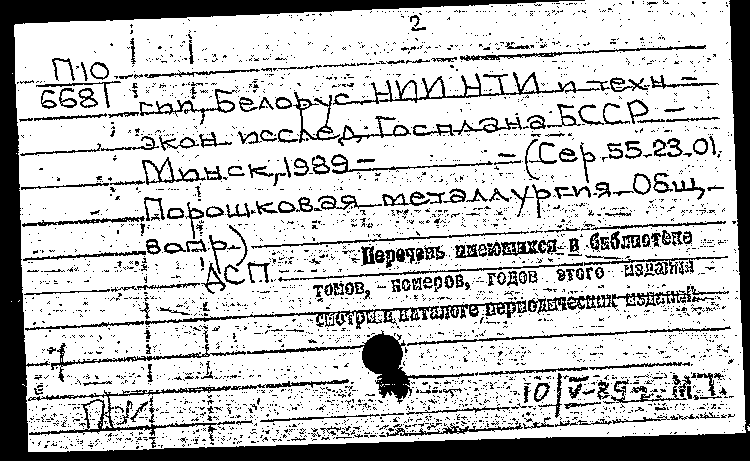 2
П10
6681
гии, Белорус. НИИ НТИ и техн.-
экон. исслед. Госплана БССР -
Минск, 1989 - - (Сер. 55.23.01.
Порошковая металлургия. Общ.
вопр.)
ДСП
Перечень имеющихся в библиотеке
томов, номеров, годов этого издания
смотри в каталоге периодических изданий
10/V-89 г. М.Т.